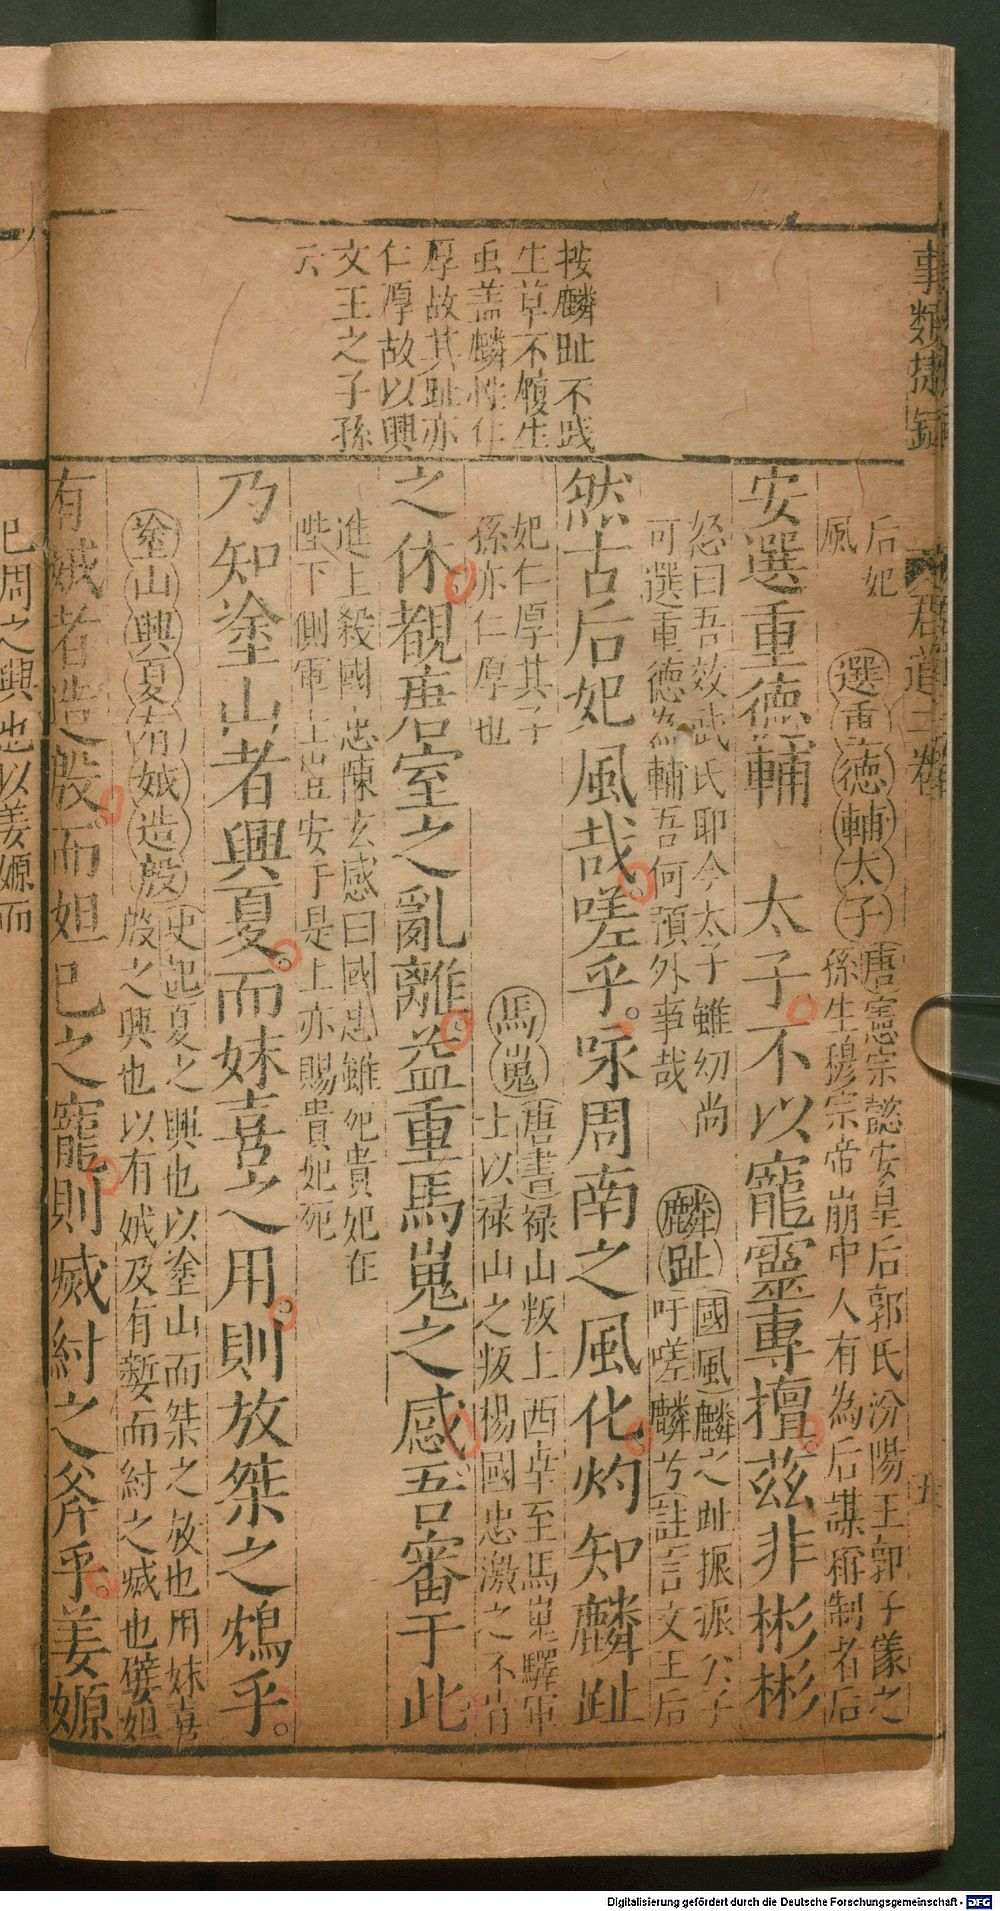 事類捷錄
君道二卷
五
按麟趾不践
生草不履生
虫盖麟性仁
厚故其趾亦
仁厚故以興
文王之子孫
六
后妃
風
選重德輔太子
唐憲宗懿安皇后郭氏汾陽王郭子儀之
孫生穆宗帝崩中人有為后謀稱制者后
安選重德輔 太子不以寵靈專擅茲非彬彬
怒曰吾效武氏耶今太子雖幼尚
可選重德為輔吾何預外事哉
麟趾
國風麟之趾振振公子
吁嗟麟兮註言文王后
然古后妃風哉嗟乎咏周南之風化灼知麟趾
妃仁厚其子
孫亦仁厚也
馬嵬
唐書禄山叛上西幸至馬嵬驛軍
士以禄山之叛楊國忠激之不肯
之休觀唐室之亂離益重馬嵬之感吾審于此
進上殺國忠陳玄感曰國忠雖死貴妃在
陛下側軍士豈安于是上亦賜貴妃死
乃知塗山者興夏而妹喜之用則放桀之鴆乎
塗山興夏有娀造殷
史起夏之興也以塗山而桀之放也用妹喜
殷之興也以有娀及有㜪而紂之烕也嬖妲
有娀者造殷而妲己之寵則烕紂之斧乎姜嫄
已周之興也以姜嫄而
Digitalisierung gefördert durch die Deutsche Forschungsgemeinschaft - DFG